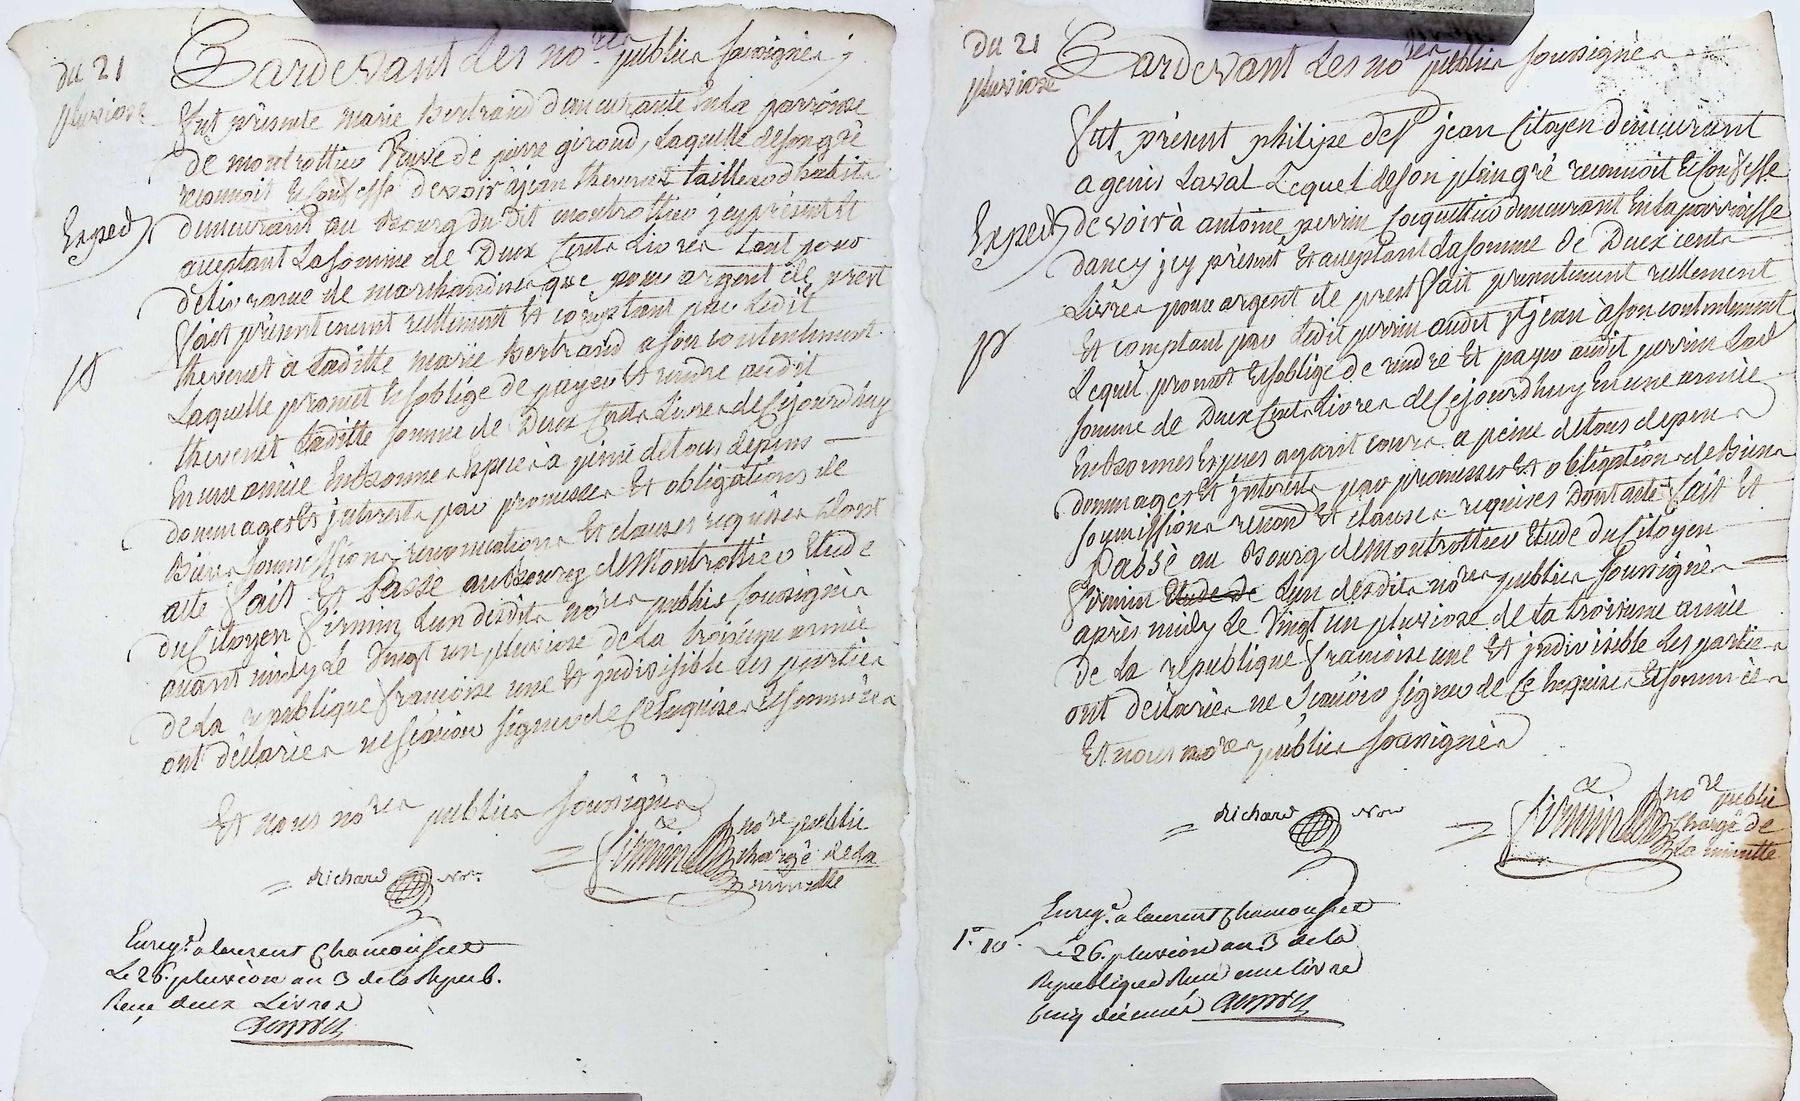 du 21
pluviose
Pardevant Les no.res publics soussignés ;
fut présente marie bertrand demeurante En la parroisse
de montrottier Veuve de pierre giroud, Laquelle de son gré
reconnoit Et Confesse devoir a jean thevenet tailleur d'habits
Exped
demeurant au Bourg du dit montrottier jcy present Et
acceptant La somme de Deux Cents Livres tant pour
délivrance de marchandises que pour argent de prest
fait présentement réellement Et comptant par Ledit
thevenet à Laditte marie bertrand a son contentement
Laquelle promet Et s'oblige de payer Et rendre audit
thevenet Laditte somme de Deux Cents Livres de Cejourdhuy
En une année En bonnes Especes à peine de tous depens
dommages Et jnterests par promesses Et obligations de
Biens soumissions renonciations Et clauses requises Dont
acte fait Et Passé au bourg de Montrottier Etude
du Citoyen firmin L'un desdits no.res publics soussignés
avant midy Le Vingt un pluviose de La troisieme année
de La republique francoise une Et jndivisible Les parties
ont déclarées ne scavoir signer de Ce Enquises Et sommées
Et nous no.res publics soussignés
Richard No.re
firmin no.re public
chargé de La
minutte
Enreg.é a laurent Chamousset
Le 26. pluviôse an 3 de la Repub.
Reçu deux Livres
du 21
pluviose
Pardevant Les no.res publics soussignés
fut présent philipe de st jean Citoyen demeurant
a genis Laval Lequel de son plein gré reconnoit Et Confesse
Exped
devoir à antoine perrin Coquettier demeurant En la parroisse
dancy jcy présent Et acceptant La somme de Deux cents
Livres pour argent de prest fait presentement réellement
Et comptant par Ledit perrin audit st jean à son contentement
Lequel promet Et s'oblige de rendre Et payer audit perrin Lad
somme de Deux Cents Livres de Cejourdhuy En une année
En bonnes Especes ayant cours a peine de tous depens
dommages Et jnterests par promesses Et obligations de Biens
soumissions renond Et clauses requises Dont acte fait Et
Passé au Bourg de Montrottier Etude du Citoyen
firmin Etude de L'un desdits no.res publics soussignés
après midy Le Vingt un pluviose de La troisieme année
de La republique francoise une Et jndivisible Les parties
ont déclarées ne scavoir signer de Ce Enquises Et sommées
Et nous no.res publics soussignés
Richard No.re
firmin no.re public
chargé de
La minutte
Enreg.é a laurent Chamousset
1.# 10
Le 26. pluviôse an 3 de la
Republique Reçu une livre
Cinq décimes